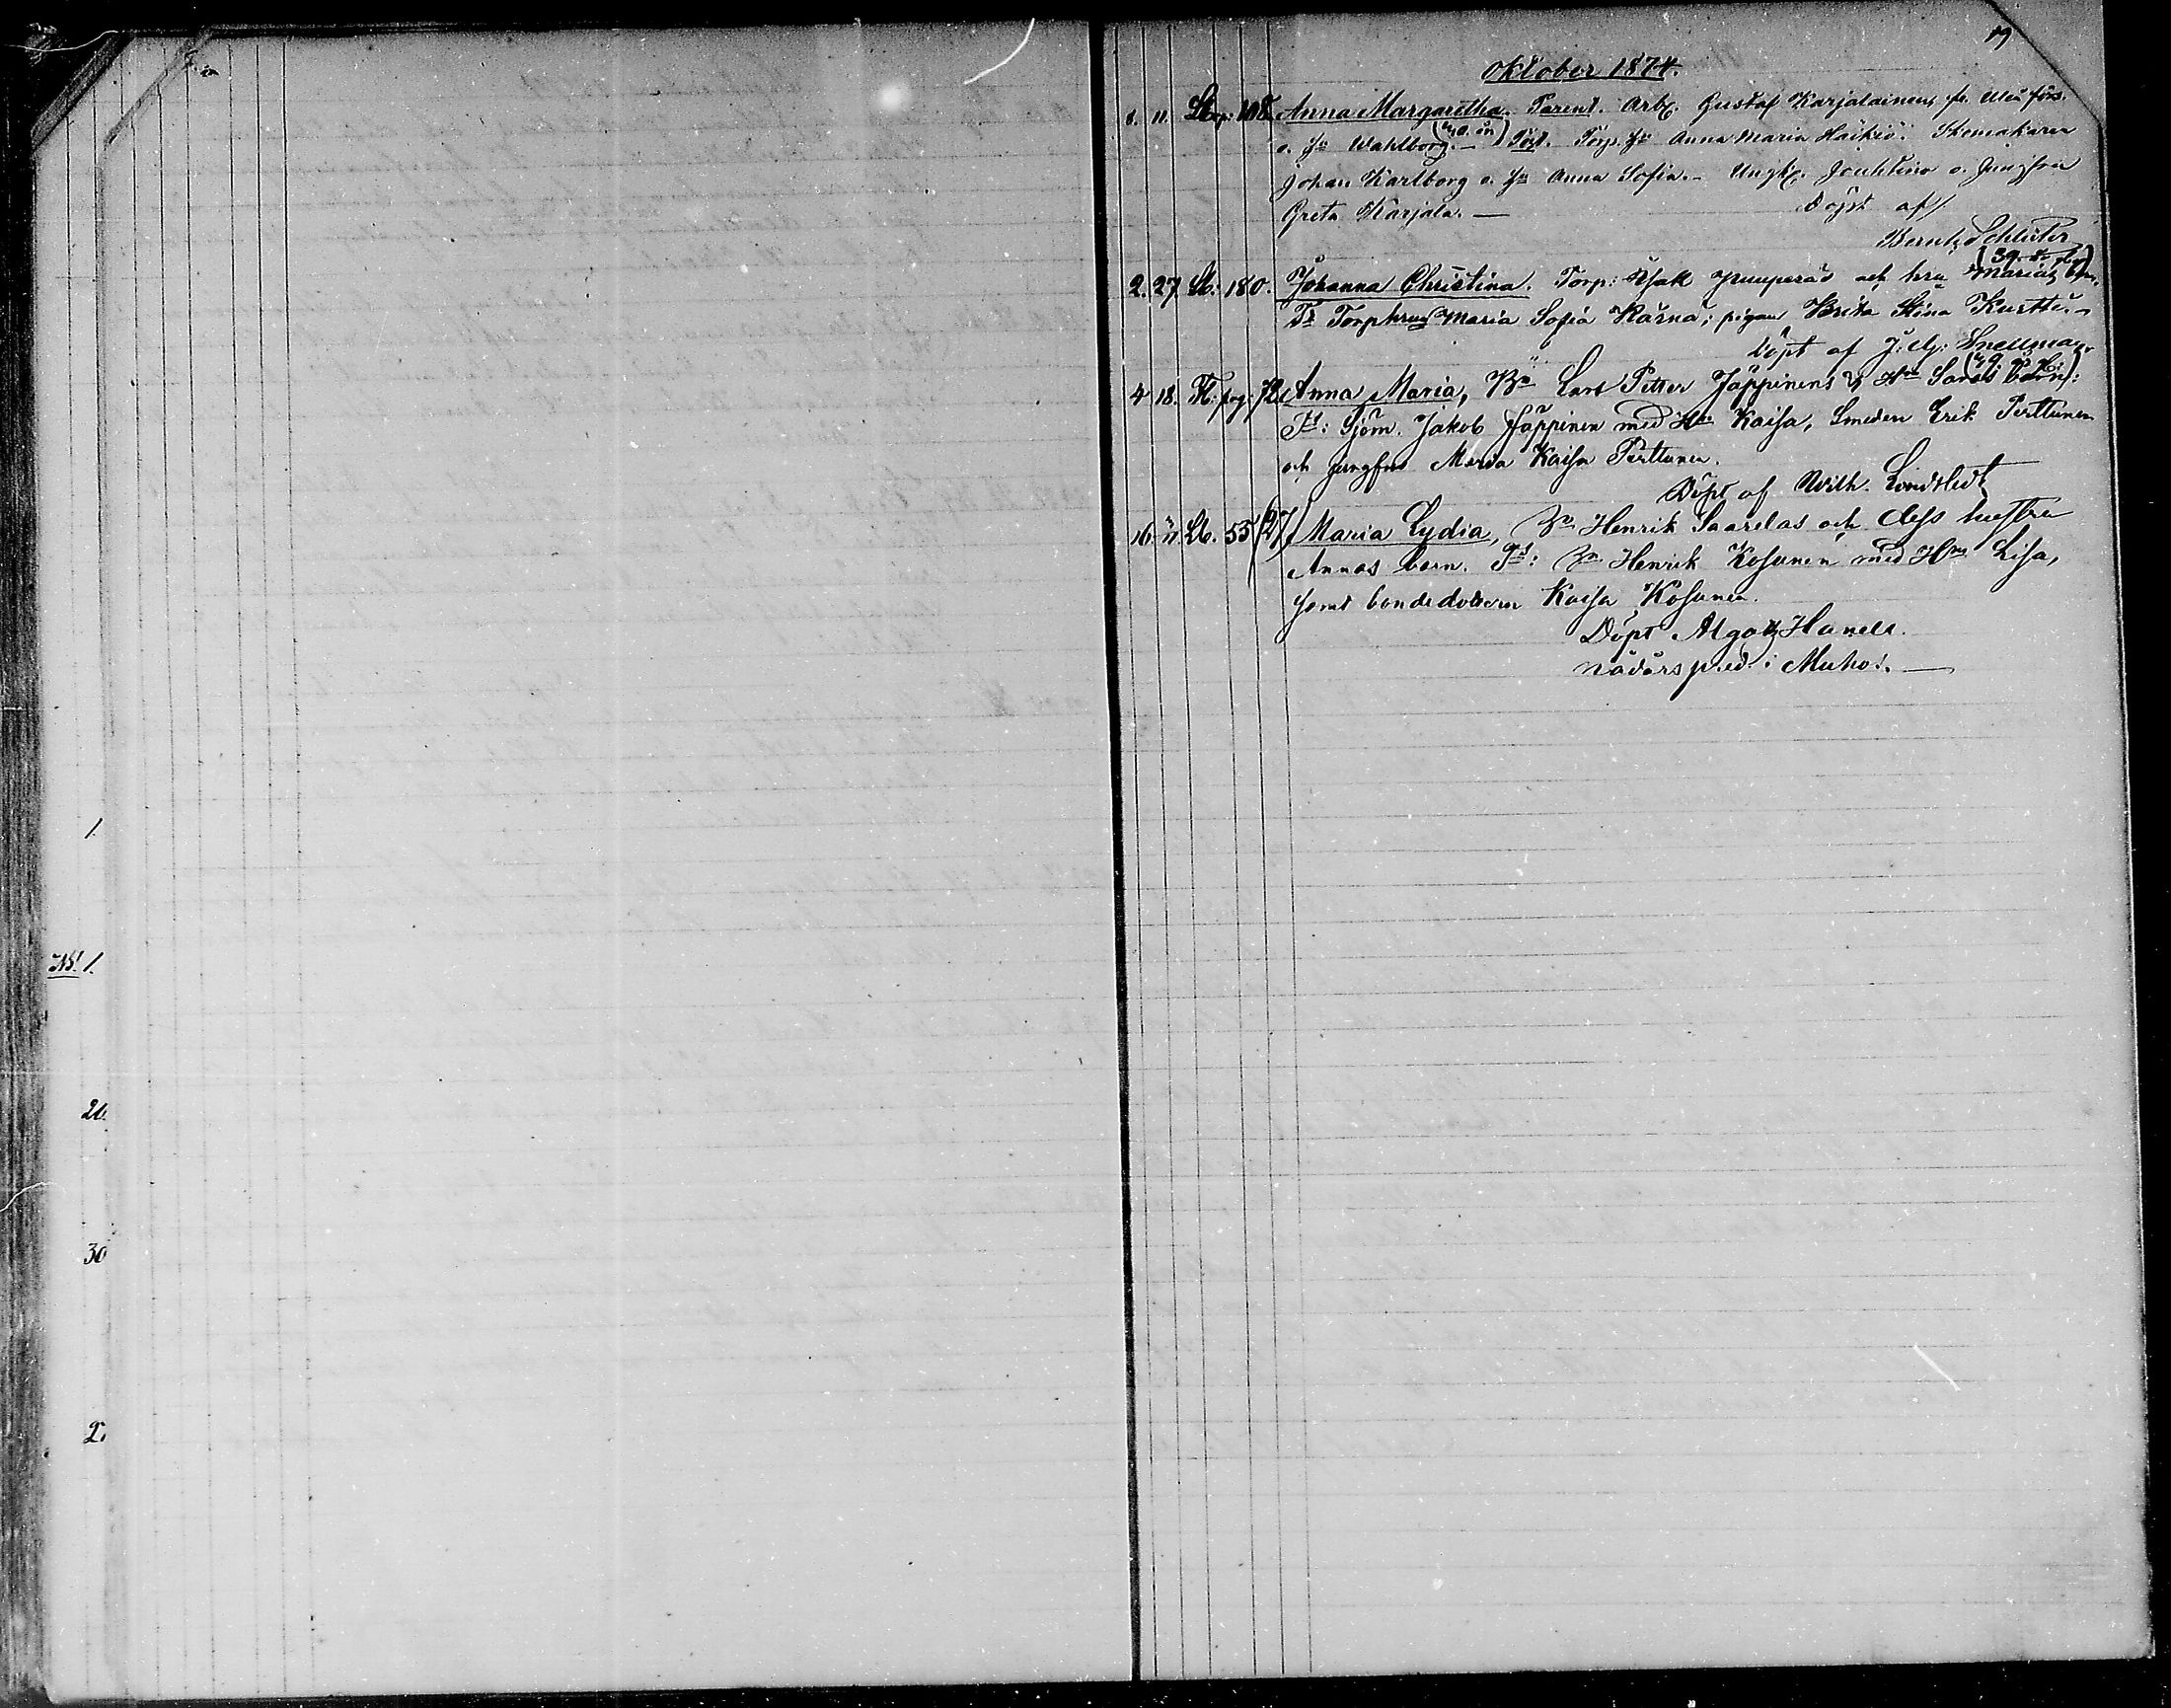 19
Oktober 1874.
8. 11. 108. Anna Margaretha. Parent. Arb. Gustaf Karjalainen, fr. Uleå förs.
o. Wahlborg. Test. Torp. Anna Maria Häikiö. Skomakaren
Johan Karlborg o. Anna Sofia. - Ungk. o. Jungfru
Greta Karjala. — Döpt af
Schlüter
2. 27. Lb. 180. Johanna Christina. Torp: Isak och hru Marias
Ts Torphrun Maria Sofia Kärnä; pigan Brita Stina Kurtti. -
Döpt af Snellman.
4 18. pag: 72. Anna Maria, Lars Petter Jäppinens & Hu Saras barn:
Ts: Sjöm. Jakob Jäppinen med Hu Kaisa, Smeden Erik Perttunen
och jungfrun Maria Kaisa Perttunen.
Döpt af Wilh. Lindstedt
16. 17. Lb. 55 (27) Maria Lydia, Henrik Saarelas och dess hustru
Annas barn. Ts: Henrik Kosunen med Hu Lisa,
samt bondedottren Kaisa Kosunen.
Döpt Hanell.
nådårspred. i Muhos. —
1.
NB! 1.
20.
30
2.